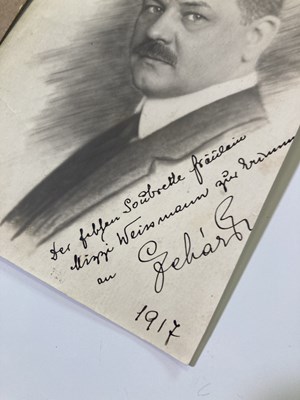 Der feschen Soubrette Fräulein
Mizzi Weissmann zur Erinn
an Lehár
1917